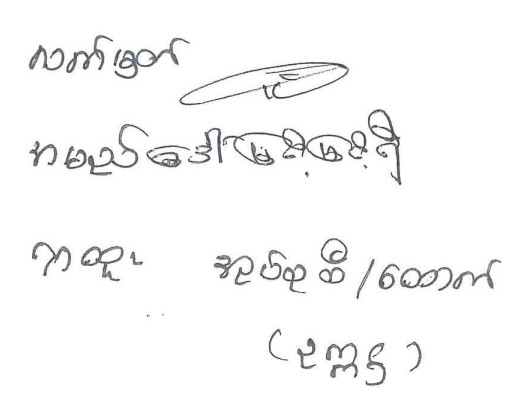 လက်မှတ်
အမည် ဒေါ်မြင့်မြင့်ရီ
ရာထူး အုပ်စုထိ/ထောက်
(ဥက္ကဋ္ဌ)